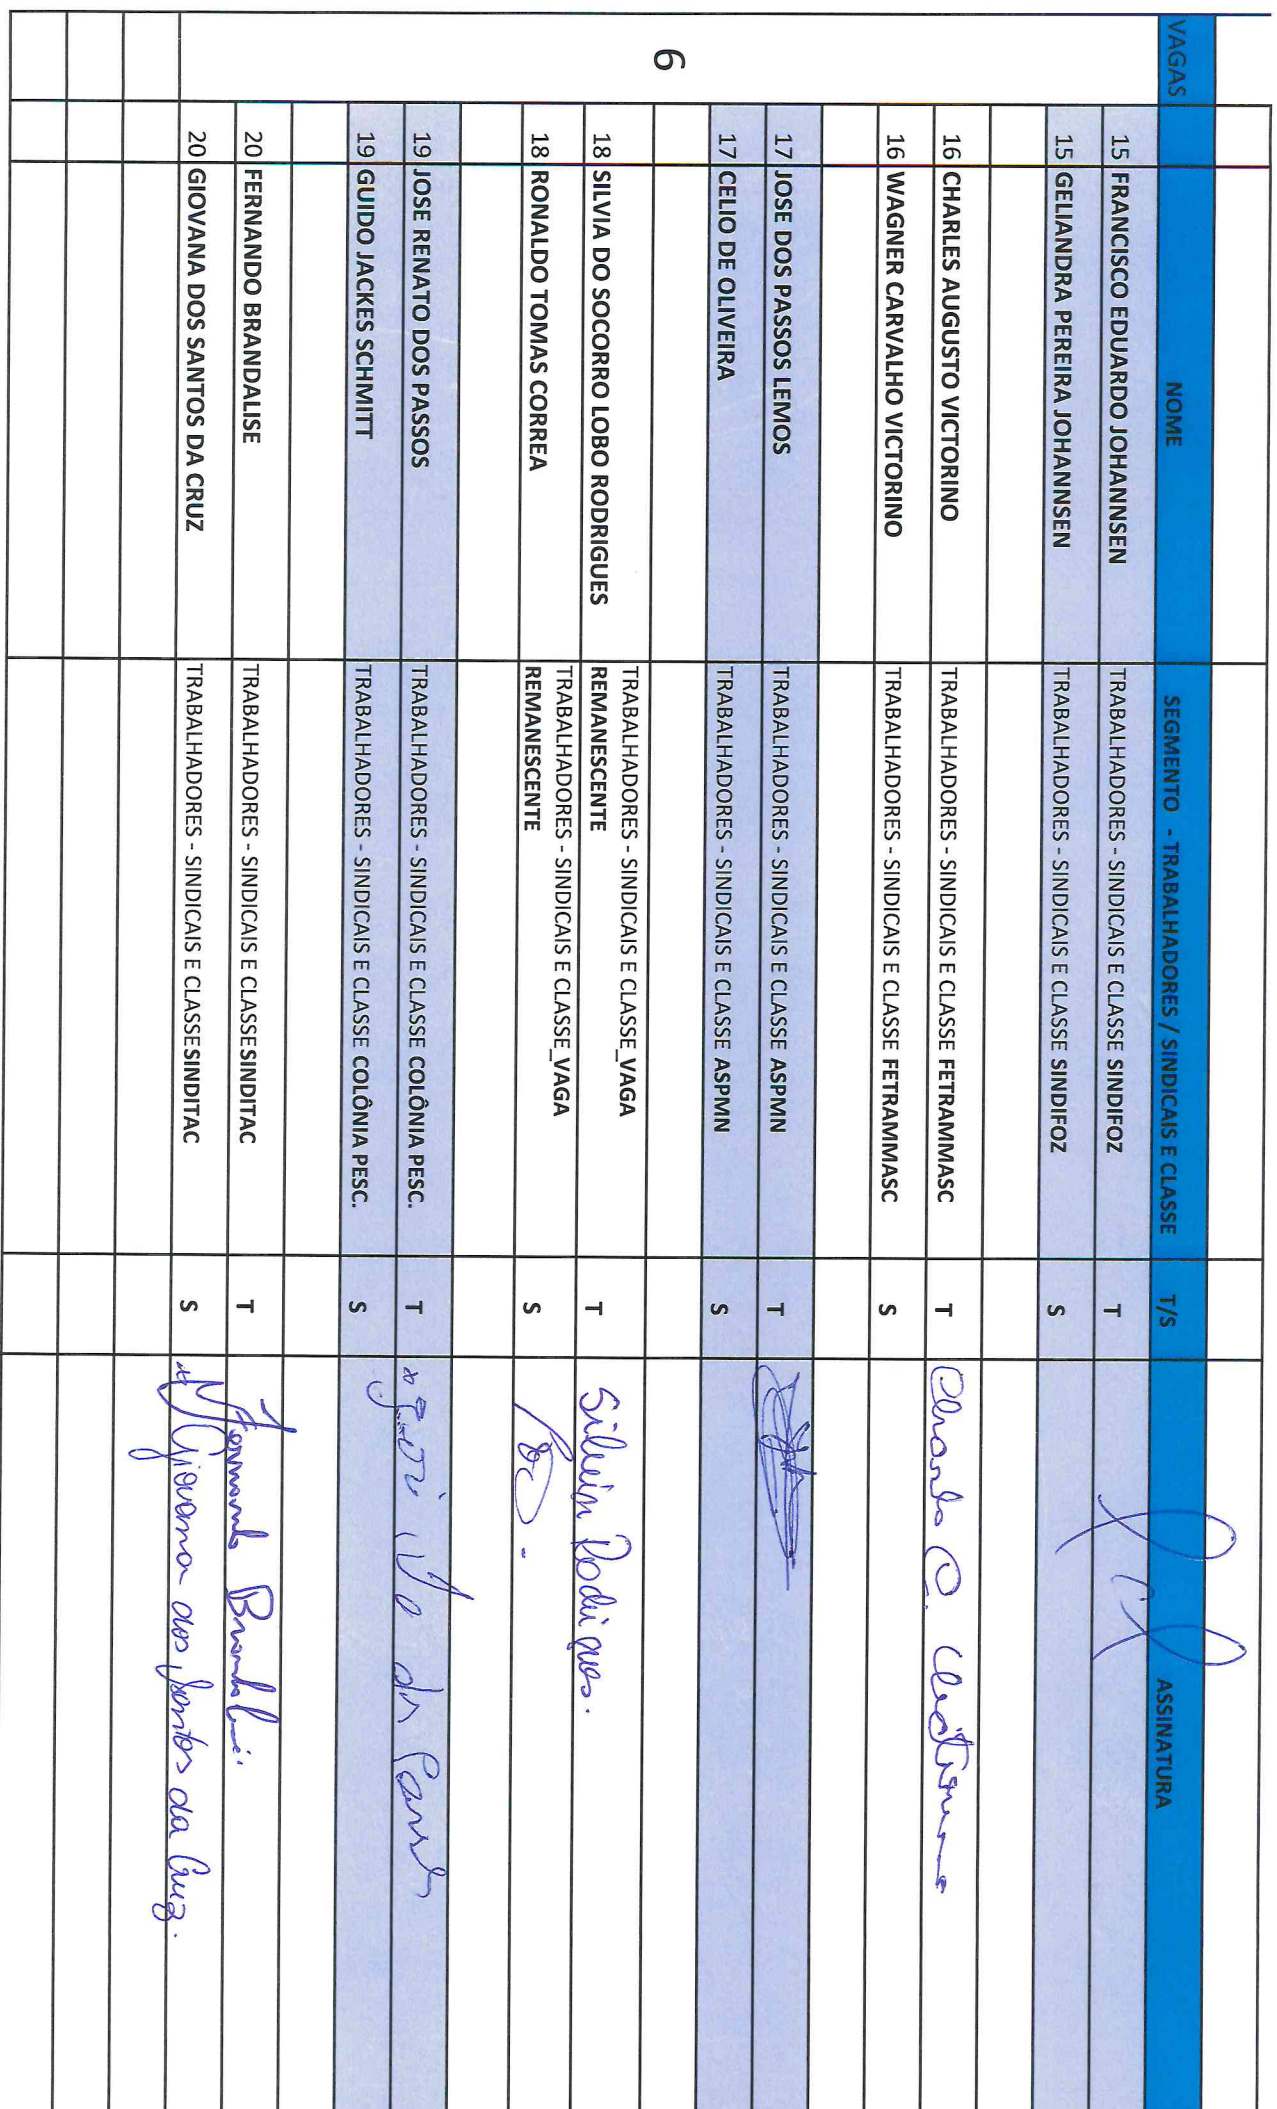 VAGAS NOME SEGMENTO - TRABALHADORES / SINDICAIS E CLASSE T/S ASSINATURA
15 FRANCISCO EDUARDO JOHANNSEN TRABALHADORES - SINDICAIS E CLASSE SINDIFOZ T
15 GELIANDRA PEREIRA JOHANNSEN TRABALHADORES - SINDICAIS E CLASSE SINDIFOZ S
16 CHARLES AUGUSTO VICTORINO TRABALHADORES - SINDICAIS E CLASSE FETRAMMASC T
16 WAGNER CARVALHO VICTORINO TRABALHADORES - SINDICAIS E CLASSE FETRAMMASC S
6
17 JOSE DOS PASSOS LEMOS TRABALHADORES - SINDICAIS E CLASSE ASPMN T
17 CELIO DE OLIVEIRA TRABALHADORES - SINDICAIS E CLASSE ASPMN S
TRABALHADORES - SINDICAIS E CLASSE_VAGA
18 SILVIA DO SOCORRO LOBO RODRIGUES REMANESCENTE T Silvia Rodrigues.
TRABALHADORES - SINDICAIS E CLASSE_VAGA
18 RONALDO TOMAS CORREA REMANESCENTE S
19 JOSE RENATO DOS PASSOS TRABALHADORES - SINDICAIS E CLASSE COLÔNIA PESC. T
19 GUIDO JACKES SCHMITT TRABALHADORES - SINDICAIS E CLASSE COLÔNIA PESC. S
20 FERNANDO BRANDALISE TRABALHADORES - SINDICAIS E CLASSESINDITAC T Fernando
20 GIOVANA DOS SANTOS DA CRUZ TRABALHADORES - SINDICAIS E CLASSESINDITAC S Giovana dos Santos da Cruz.